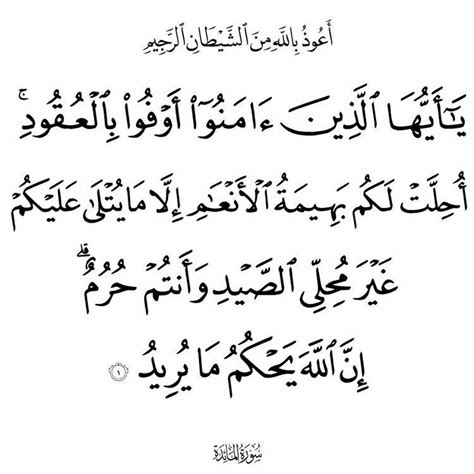 أَعُوذُ بِاللَّهِ مِنَ ٱلشَّيْطَانِ ٱلرَّجِيمِ
يَـٰٓأَيُّهَا ٱلَّذِينَ ءَامَنُوٓا۟ أَوْفُوا۟ بِٱلْعُقُودِ ۚ
أُحِلَّتْ لَكُم بَهِيمَةُ ٱلْأَنْعَـٰمِ إِلَّا مَا يُتْلَىٰ عَلَيْكُمْ
غَيْرَ مُحِلِّى ٱلصَّيْدِ وَأَنتُمْ حُرُمٌ ۗ
إِنَّ ٱللَّهَ يَحْكُمُ مَا يُرِيدُ ١
سُورَةُ المَائِدَةِ